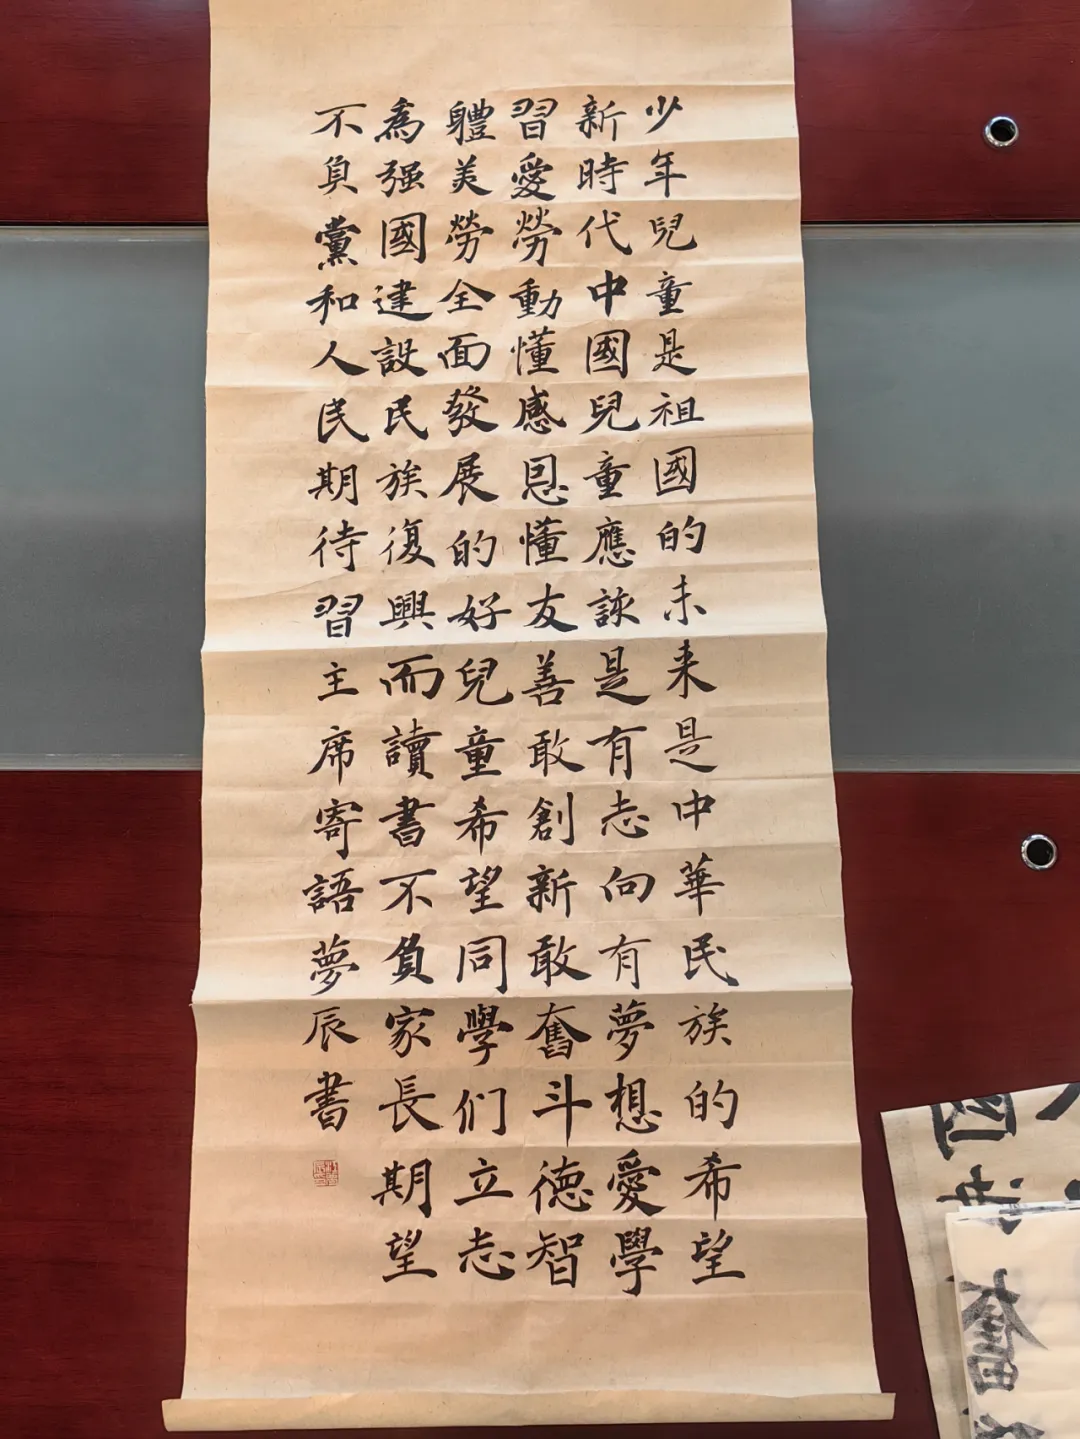 少年兒童是祖國的未来是中華民族的希望
新時代中國兒童應該是有志向有夢想愛學
習愛勞動懂感恩懂友善敢創新敢奮斗德智
軆美勞全面發展的好兒童希望同學们立志
為强國建設民族復興而讀書不負家長期望
不負黨和人民期待習主席寄語夢辰書
國